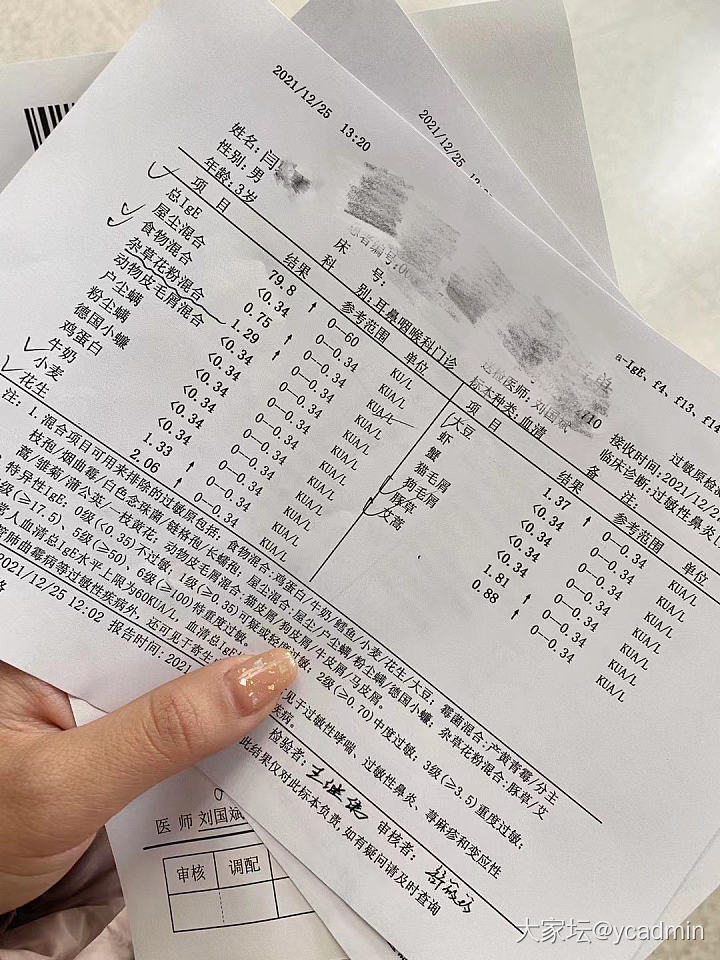 2021/12/25 13:20
2021/12/25
姓名:闫
性别:男
年龄:3岁
患者编号:00
床 号:
科 别:耳鼻咽喉科门诊
送检医师:刘国斌
标本种类:血清
a-IgE、f4、f13、f14
过敏原检
接收时间:2021/12/2
临床诊断:过敏性鼻炎
备 注:
项 目 结果 参考范围 单位
总IgE 79.8 ↑ 0—60 KU/L
屋尘混合 <0.34 0—0.34 KUA/L
食物混合 0.75 ↑ 0—0.34 KUA/L
杂草花粉混合 1.29 ↑ 0—0.34 KUA/L
动物皮毛屑混合 <0.34 0—0.34 KUA/L
户尘螨 <0.34 0—0.34 KUA/L
粉尘螨 <0.34 0—0.34 KUA/L
德国小蠊 <0.34 0—0.34 KUA/L
鸡蛋白 <0.34 0—0.34 KUA/L
牛奶 <0.34 0—0.34 KUA/L
小麦 1.33 ↑ 0—0.34 KUA/L
花生 2.06 ↑ 0—0.34 KUA/L
项 目 结果 参考范围 单位
大豆 1.37 ↑ 0—0.34 KUA/L
虾 <0.34 0—0.34 KUA/L
蟹 <0.34 0—0.34 KUA/L
猫毛屑 <0.34 0—0.34 KUA/L
狗毛屑 <0.34 0—0.34 KUA/L
豚草 1.81 ↑ 0—0.34 KUA/L
艾蒿 0.88 ↑ 0—0.34 KUA/L
注: 1.混合项目可用来排除的过敏原包括: 食物混合:鸡蛋白/牛奶/鳕鱼/小麦/花生/大豆; 霉菌混合:产黄青霉/分主
枝孢/烟曲霉/白色念珠菌/链格孢/长蠕孢; 屋尘混合:屋尘/户尘螨/粉尘螨/德国小蠊; 杂草花粉混合:豚草/艾
蒿/雏菊/蒲公英/一枝黄花; 动物皮毛屑混合:猫皮屑/狗皮屑/牛皮屑/马皮屑。
特异性IgE: 0级(<0.35)不过敏, 1级(≥0.35)可疑或轻度过敏; 2级(≥0.70)中度过敏; 3级(≥3.5)重度过敏;
级(≥17.5)、5级(≥50)、6级(≥100)特重度过敏。
常人血清总IgE水平上限为60KUA/L, 血清总IgE 见于过敏性哮喘、过敏性鼻炎、荨麻疹和变应性
管肺曲霉病等过敏性疾病外, 还可见于寄生 疾病。
2021/12/25 12:02 报告时间:2021
检验者: 审核者:
此结果仅对此标本负责,如有疑问请及时查询
医 师 刘国斌
审核 调配
大家坛@ycadmin